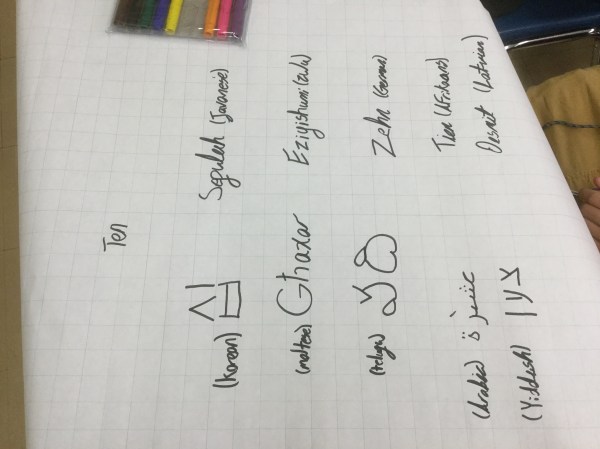 Ten
(Korean) 십 Sepuluh (Javanese)
(maltese) Ghaxar Eziyishumi (Zulu)
(telugu) పది Zehn (German)
Tien (Afrikaans)
(Arabic) عشرة Desmit (Latvian)
(Yiddish) צען